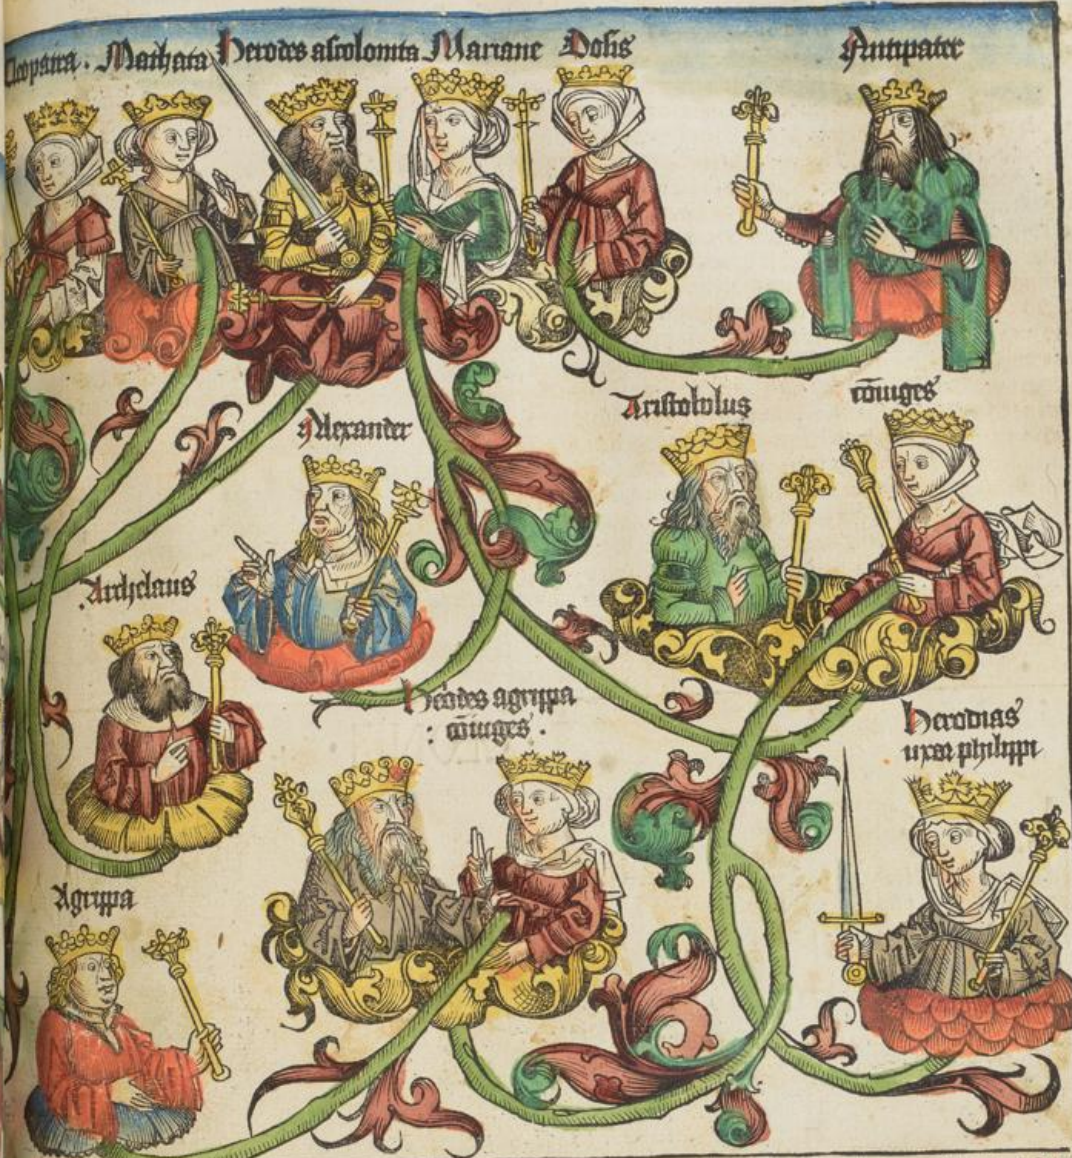 Cleopatra . Mathata Herodes ascolonita Mariane Dosis Antipater
Aristobolus
cōiuges
Alexander
Archelaus
Herodes agrippa
: cōiuges .
Herodias
uxor philippi
Agrippa